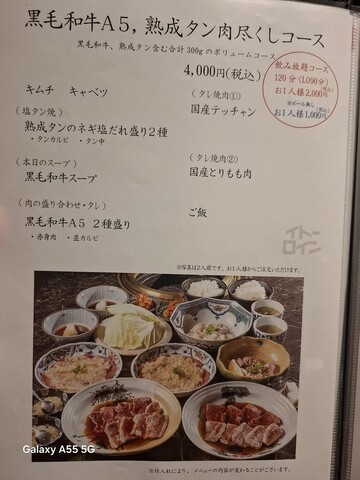 黒毛和牛A5，熟成タン肉尽くしコース
黒毛和牛、熟成タン含む合計300gのボリュームコース
4,000円(税込)
飲み放題コース
120分(L.O90分)
お1人様2,000円(税込)
※ビール無し
お1人様1,000円(税込)
キムチ　キャベツ
（タレ焼肉①）
国産テッチャン
（塩タン焼）
熟成タンのネギ塩だれ盛り2種
・タンカルビ　・タン中
（本日のスープ）
黒毛和牛スープ
（タレ焼肉②）
国産とりもも肉
（肉の盛り合わせ・タレ）
黒毛和牛A5 2種盛り
・赤身肉　・並カルビ
ご飯
※写真は2人前です。お1人様からご注文いただけます。
Galaxy A55 5G
※仕入れにより、メニューの内容が変わることがございます。